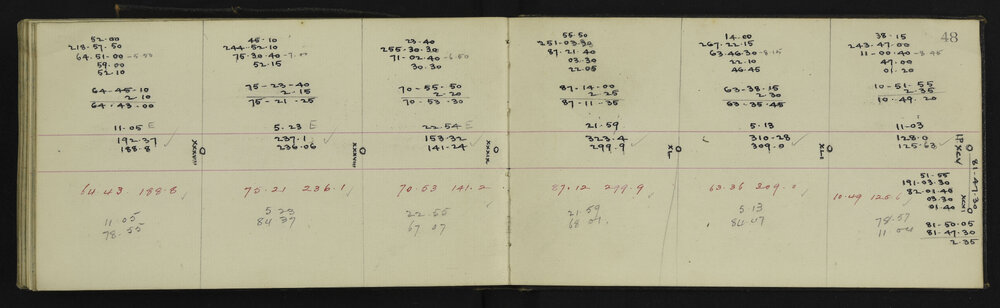 52.00
218.57.50
64.51.00-5.50
59.00
52.10
64-45-10
2.10
64.43.00
11.05 E
192.37
188.8
XXXVII
64.43 188.8
11.05
78.55
45.10
244.52.10
75.30.40-7.00
52.15
75-23-40
2.15
75-21-25
5.23 E
237.1
236.06
XXXVIII
75.21 236.1
5 23
84 37
23.40
255.30.30
71-02.40-6.50
30.30
70-55.50
2.20
70.53.30
22.54 E
153.32
141.24
XXXIX
70.53 141.2
22.55
67 07
55.50
251.03.30
87.21.40
03.30
22.05
87-14.00
2.25
87-11-35
21.59
323.4
299.9
XL
87.12 299.9
21.59
68 01
14.00
267.22.15
63.46.30-8.15
22.10
46.45
63-38.15
2.30
63-35.45
5.13
310.28
309.0
XLI
63.36 309.0
5 13
84.47
48
38.15
243.47.00
11-00.40-8.45
47.00
01.20
10-51-55
2.35
10-49.20
11-03
128.0
125.63
1P.XCV
81-47.30
10.49 125.6
78.57
11.04
51.55
191.03.30
82.01.40
03.30
01.40
XCVI
81-50.05
81-47.30
2.35